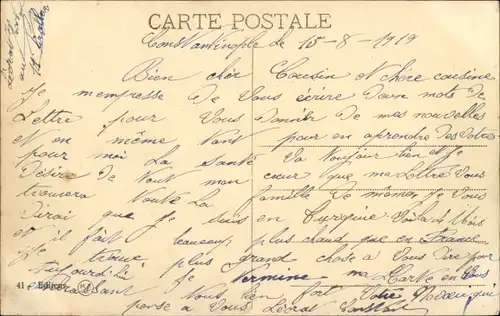 CARTE POSTALE
Constantinople le 15-8-1919
Bien chèr Cousin et chère cousine
Je mempresse de Vous écrire deux mots de
Lettre pour Vous Donnér de mes nouvelles
et en même tant pour en aprendre des Votres
pour moi La santé Va toujour bien et Je
Désire de tout mon cœur que ma Lettre Vous
trouvera toute La famille de même Je Vous
Dirai que Je suis en Turquie Voila 2 Mois
et il fait beaucoup plus chaud que en France
Je trouve plus grand chose a Vous Dire pour
aujourd'hui Je termine ma Carte en Vous
Embrassant tous bien fort Votre
pense a Vous Léorat Constant
41 Edition